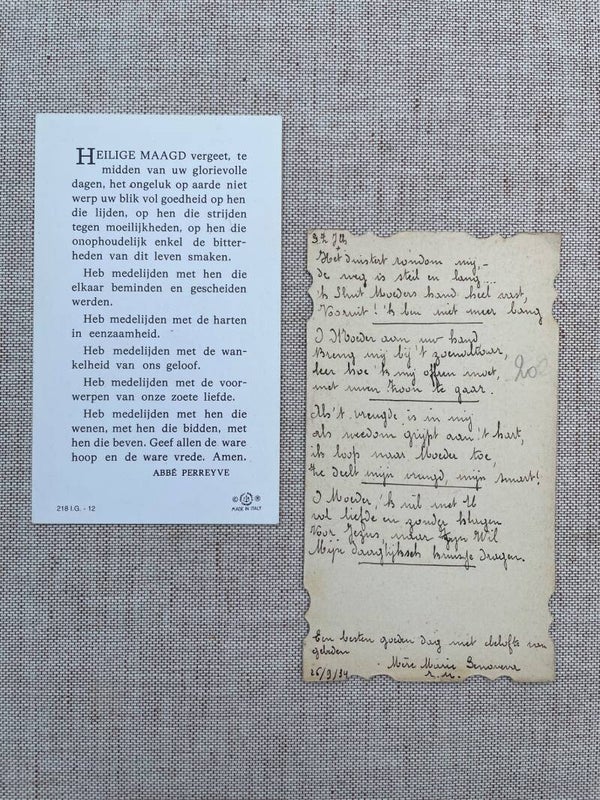 HEILIGE MAAGD vergeet, te
midden van uw glorievolle
dagen, het ongeluk op aarde niet
werp uw blik vol goedheid op hen
die lijden, op hen die strijden
tegen moeilijkheden, op hen die
onophoudelijk enkel de bitter-
heden van dit leven smaken.
Heb medelijden met hen die
elkaar beminden en gescheiden
werden.
Heb medelijden met de harten
in eenzaamheid.
Heb medelijden met de wan-
kelheid van ons geloof.
Heb medelijden met de voor-
werpen van onze zoete liefde.
Heb medelijden met hen die
wenen, met hen die bidden, met
hen die beven. Geef allen de ware
hoop en de ware vrede. Amen.
ABBÉ PERREYVE
218 I.G. - 12
© ®
MADE IN ITALY
Het duistert rondom mij,
de weg is steil en lang...
'k Sluit Moeders hand heel vast,
Vooruit! 'k ben niet meer bang
O Moeder aan uw hand
Breng mij bij 't zoenaltaar,
leer hoe 'k mij offren moet,
met uwen Zoon te gaar.
Als 't vreugde is in mij
als weedom grijpt aan 't hart,
ik loop naar Moeder toe,
Ze deelt mijn vreugd, mijn smart!
O Moeder, 'k wil met U
vol liefde en zonder klagen
Voor Jezus, naar Zijn Wil
Mijn daaglijksch kruisje dragen.
Een besten goeden dag met belofte van
gebeden
Mère Marie Genoveva
r.u.
26/9/34